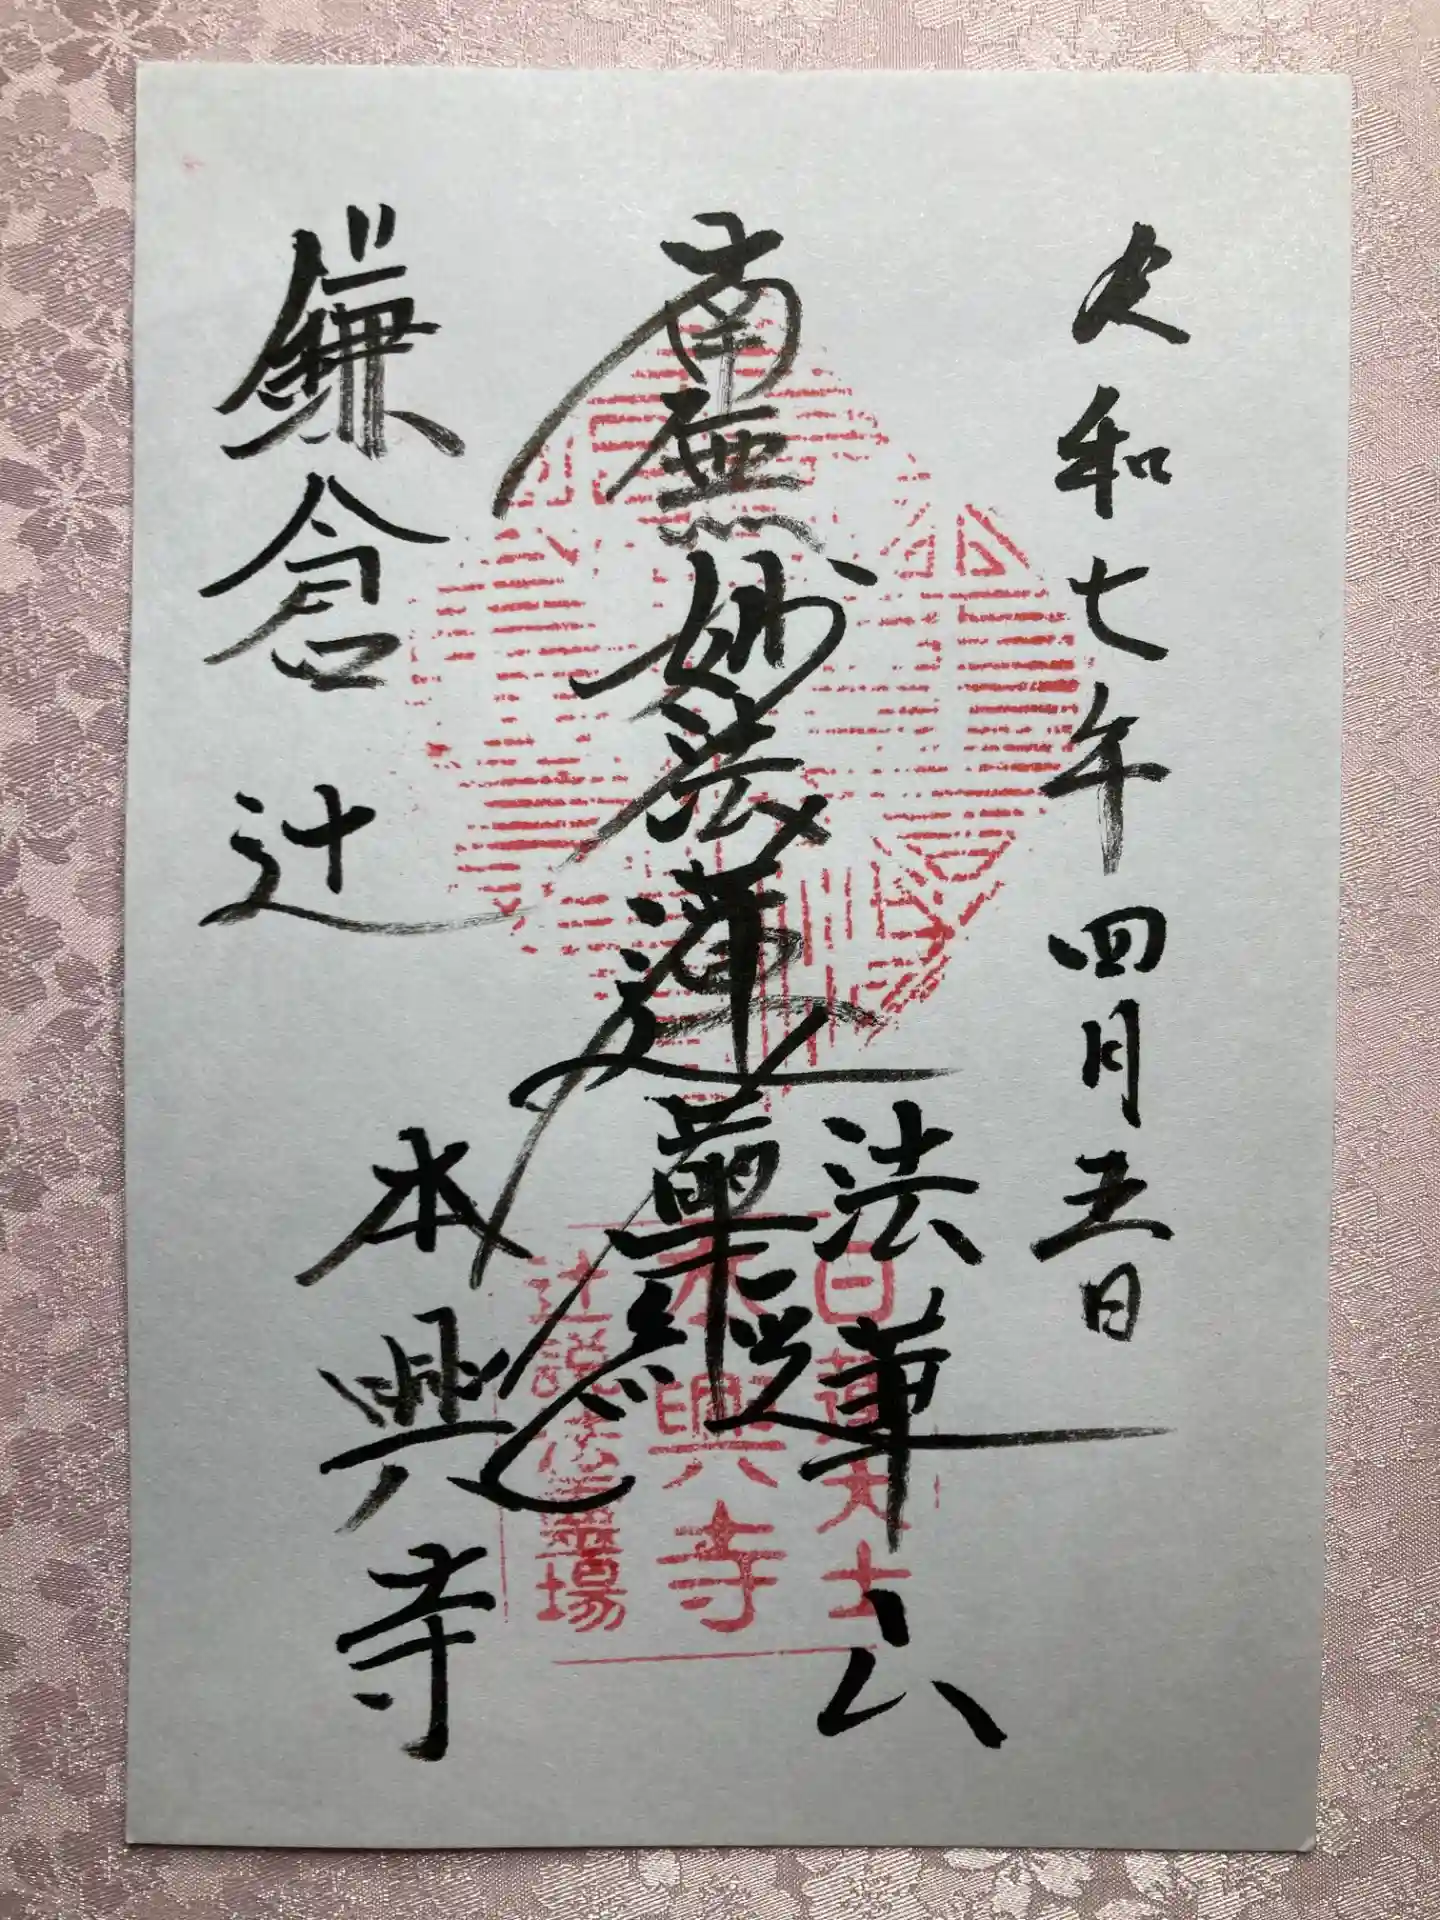 令和七年四月五日
法蓮山
南無妙法蓮華経
鎌倉辻
本興寺
日蓮大士
本興寺
辻説法霊場